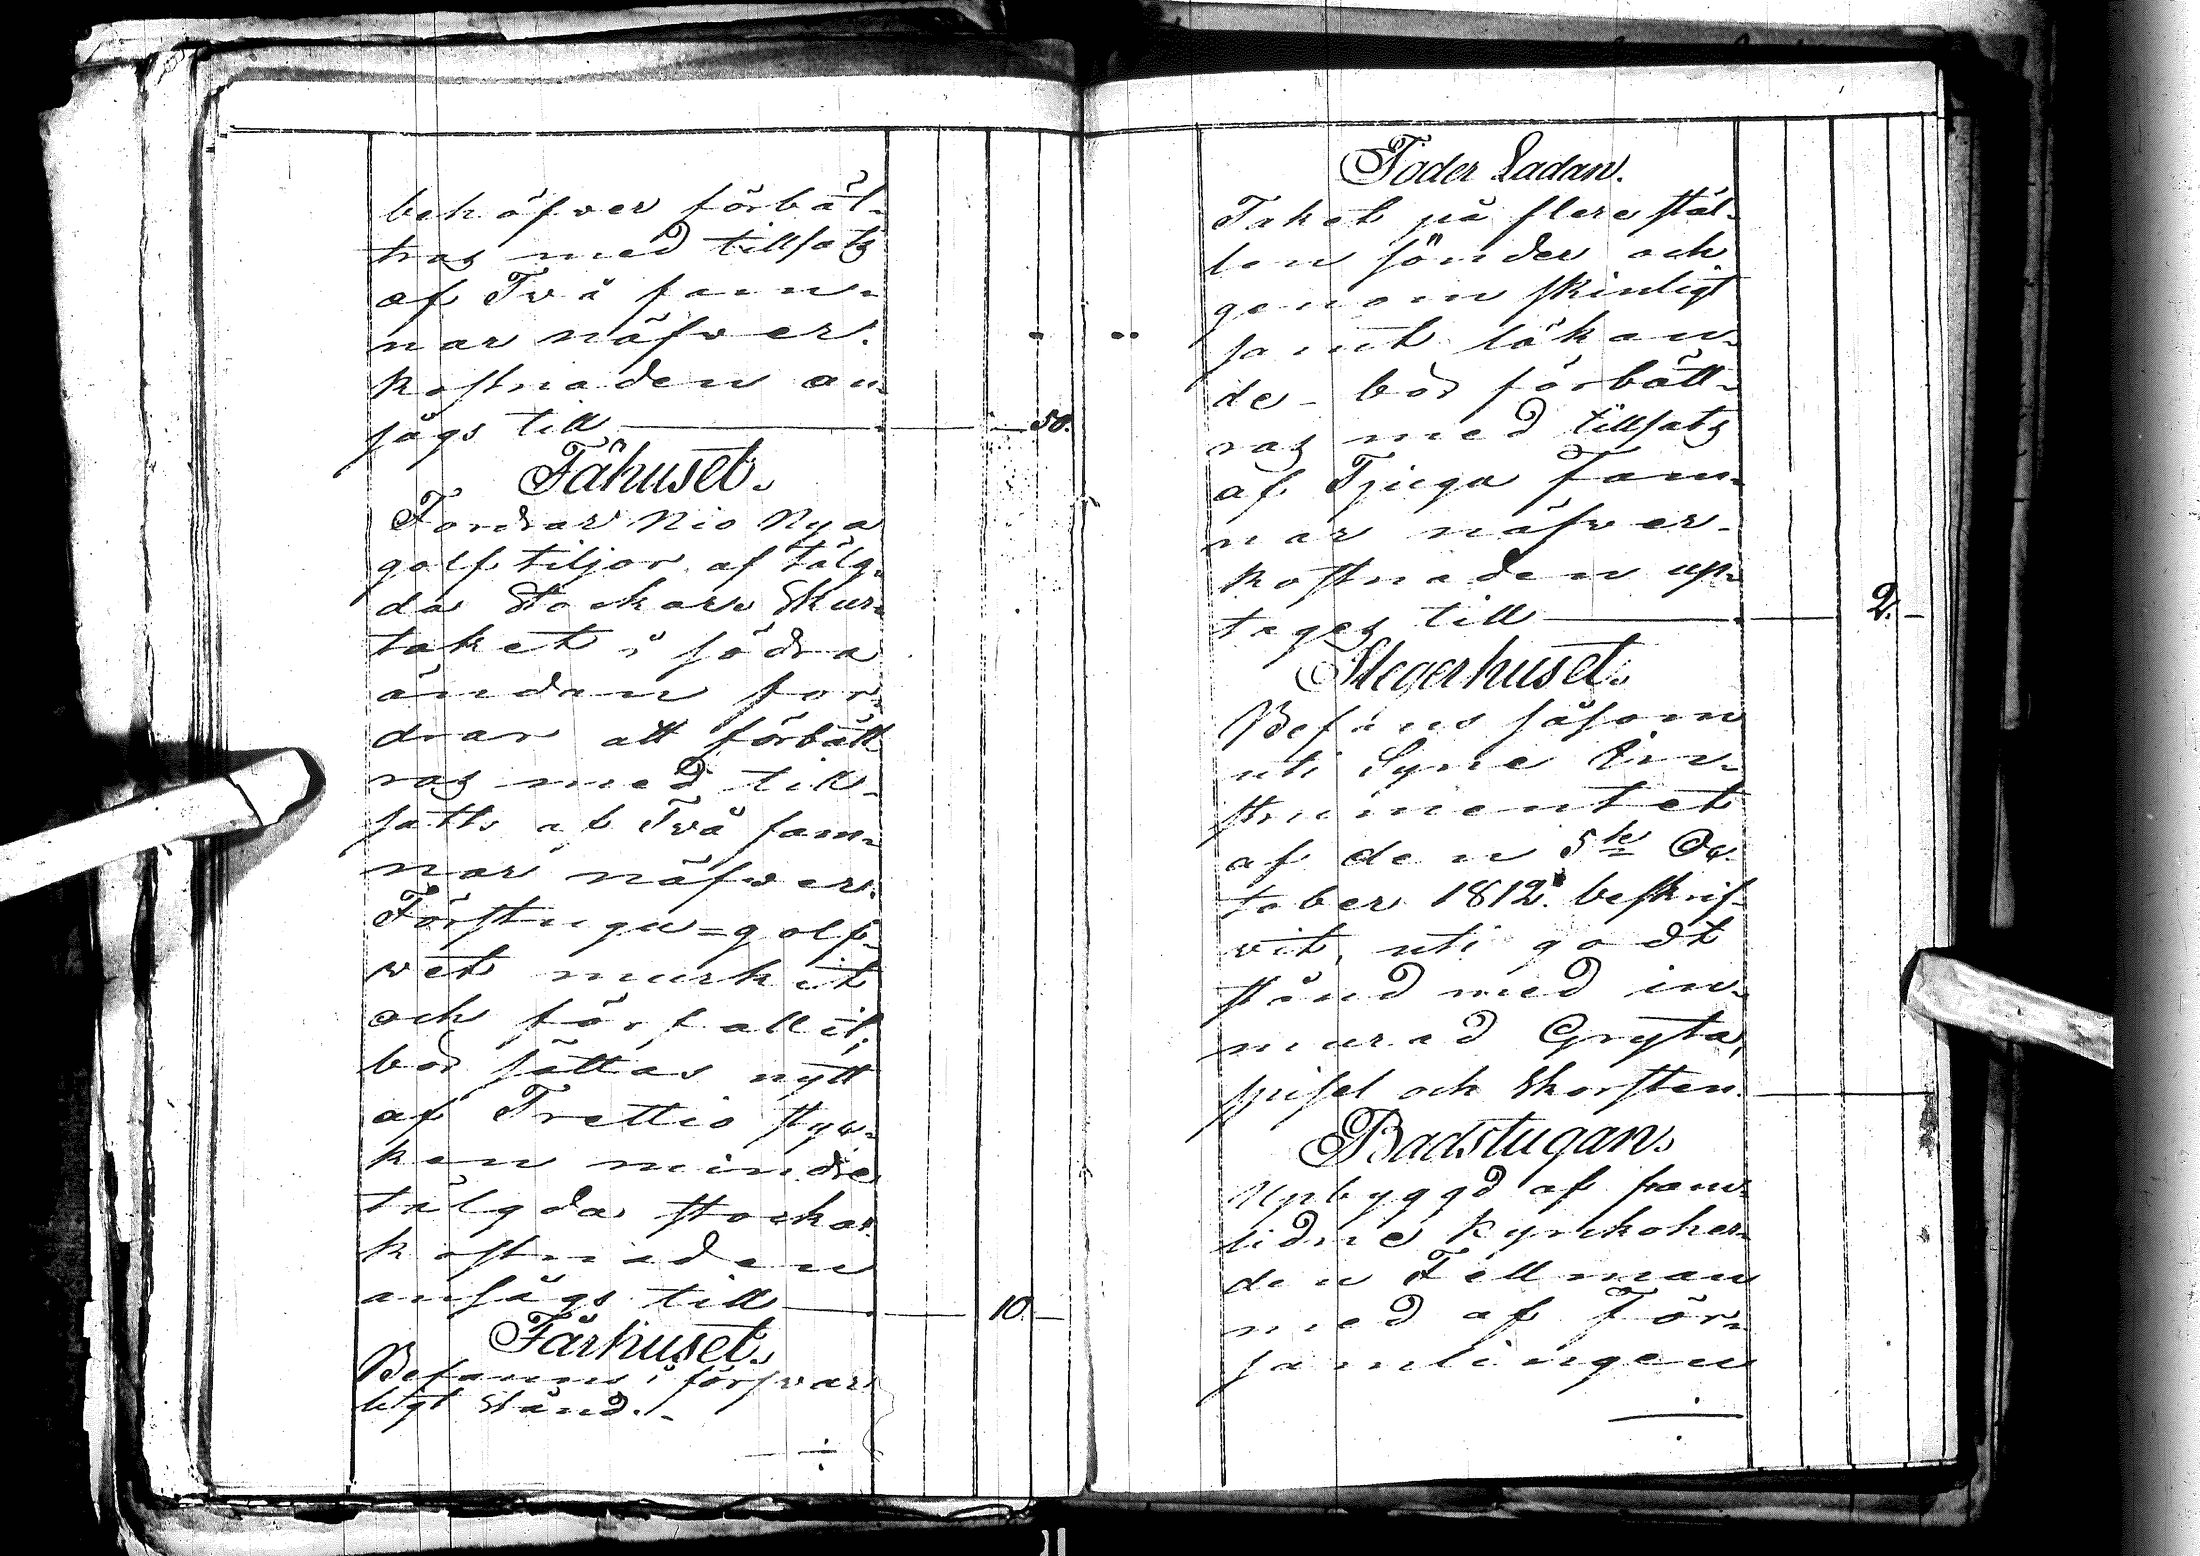 behöfver förbät-
tras med tillsats
af Två fam-
nar näfver.
kostnaden an-
sågs till — 50.
Fähuset.
Fordrar Nio Nya
golf tiljor af tälg-
da Stockar. Skur-
taket i södra
ändan for-
drar att förbätt
ras med till-
satts af Två fam-
nar näfver.
Förstugu=golf-
vet murkit
och förfallit,
bör sättas nytt
af Trettio styc-
ken mindre
tälgda stockar
kostnaden
ansågs till — 10. —
Fårhuset.
Befanns i försvar
ligt Stånd. -
Foder Ladan.
Taket på flere stäl-
len sönder och
genom skinligt
samt läkan-
de - bör förbätt-
ras med tillsats
af Tjugu Fam-
nar näfver -
kostnaden up-
tages till — 2. —
Stegerhuset.
Befins såsom
uti Syne Ins-
trumentet
af den 5te Oc-
tober 1812. beskrif-
vit, uti godt
stånd med in-
murad Gryta,
spisel och Skorsten. —
Badstugan.
Upbyggd af fram-
lidne Kyrkoher-
den Fellman
med af För-
samlingen